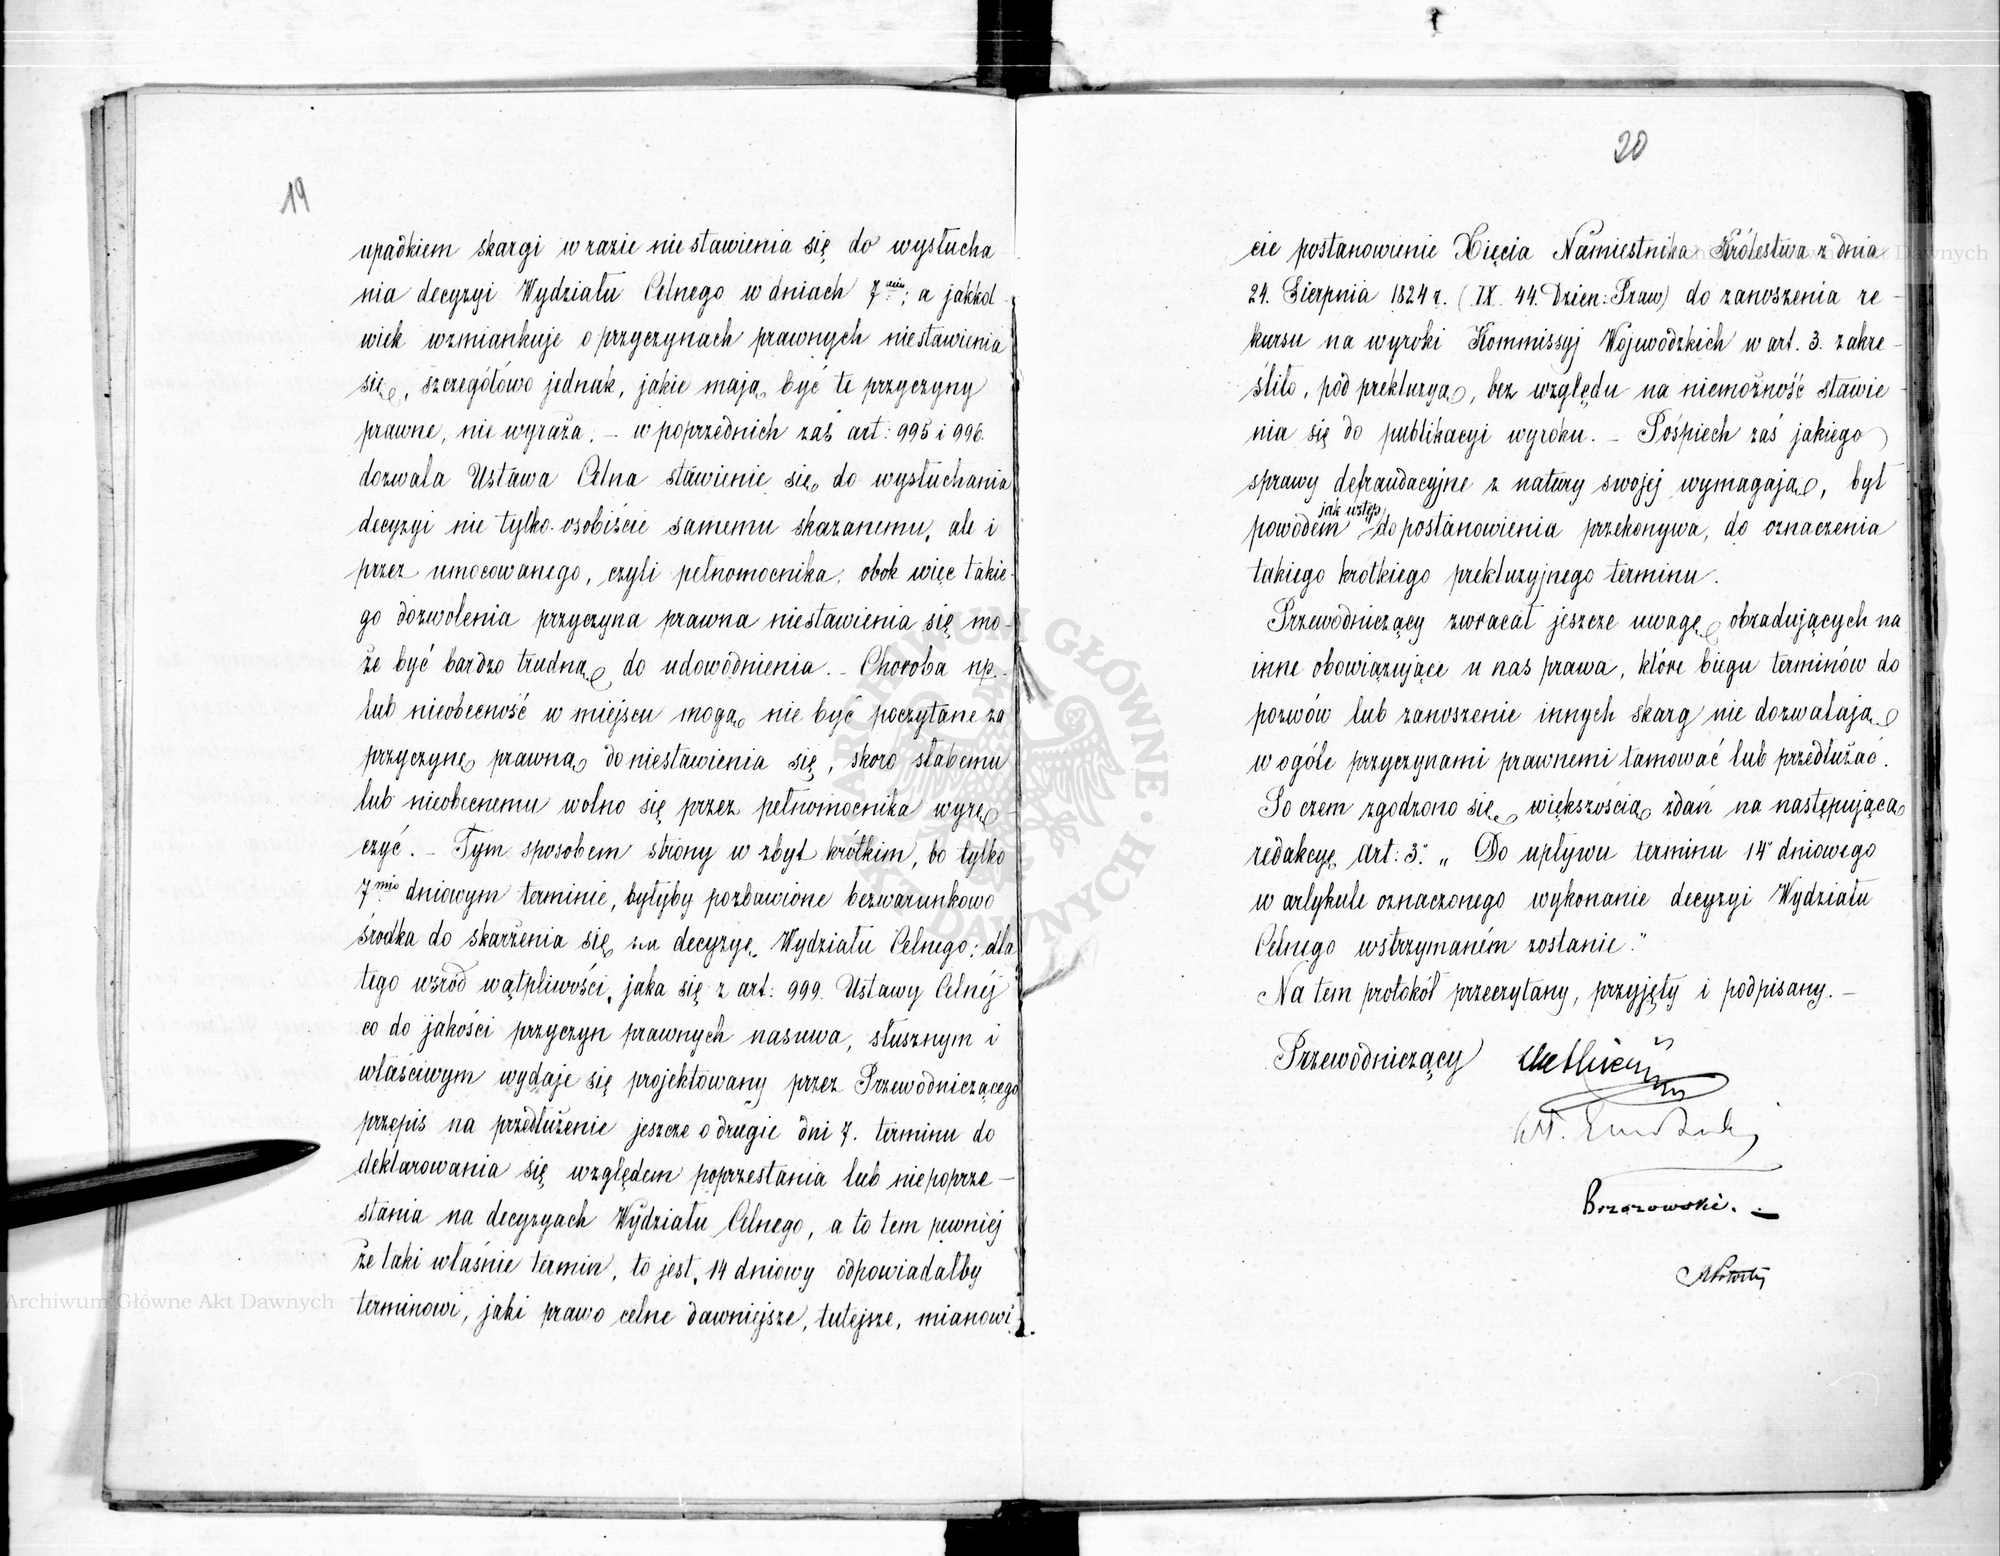 19
upadkiem skargi w razie niestawienia się do wysłucha
nia decyzyi Wydziału Celnego w dniach 7miu; a jakkol-
wiek wzmiankuje o przyczynach prawnych niestawienia
się, szczegółowo jednak, jakie mają być te przyczyny
prawne, nie wyraża. – w poprzednich zaś art: 995 i 996.
dozwala Ustawa Celna stawienie się do wysłuchania
decyzyi nie tylko osobiście samemu skazanemu, ale i
przez umocowanego, czyli pełnomocnika, obok więc takie-
go dozwolenia przyczyna prawna niestawienia się mo-
że być bardzo trudną do udowodnienia. – Choroba np.
lub nieobecność w miejscu mogą nie być poczytane za
przyczynę prawną do niestawienia się, skoro słabemu
lub nieobecnemu wolno się przez pełnomocnika wyrę-
czyć. – Tym sposobem strony w zbyt krótkim, bo tylko
7mio dniowym terminie, byłyby pozbawione bezwarunkowo
środka do skarżenia się na decyzyę Wydziału Celnego; dla
tego wśród wątpliwości, jaka się z art: 999. Ustawy Celnéj
co do jakości przyczyn prawnych nasuwa, słusznym i
właściwym wydaje się projektowany przez Przewodniczącego
przepis na przedłużenie jeszcze o drugie dni 7. terminu do
deklarowania się względem poprzestania lub niepoprze-
stania na decyzyach Wydziału Celnego, a to tem pewniej
że taki właśnie termin, to jest, 14 dniowy odpowiadałby
terminowi, jaki prawo celne dawniejsze, tutejsze, mianowi
20
cie postanowienie Xięcia Namiestnika Królestwa z dnia
24. Sierpnia 1824 r. (IX. 44. Dzien: Praw) do zanoszenia re-
kursu na wyroki Kommissyj Wojwódzkich w art. 3. zakre-
śliło, pod prekluzyą, bez względu na niemożność stawie-
nia się do publikacyi wyroku. – Pośpiech zaś jakiego
sprawy defraudacyjne z natury swojej wymagają, był
jak wstęp
powodem do postanowienia przekonywa, do oznaczenia
takiego krótkiego prekluzyjnego terminu.
Przewodniczący zwracał jeszcze uwagę obradujących na
inne obowiązujące u nas prawa, które biegu terminów do
pozwów lub zanoszenie innych skarg nie dozwalają
w ogóle przyczynami prawnemi tamować lub przedłużać.
Po czem zgodzono się większością zdań na następującą
redakcyę Art: 3. „Do upływu terminu 14 dniowego
w artykule oznaczonego wykonanie decyzyi Wydziału
Celnego wstrzymaném zostanie.”
Na tem protokół przeczytany, przyjęty i podpisany. –
Przewodniczący
Brzozowski. –
Archiwum Główne Akt Dawnych
ARCHIWUM GŁÓWNE AKT DAWNYCH